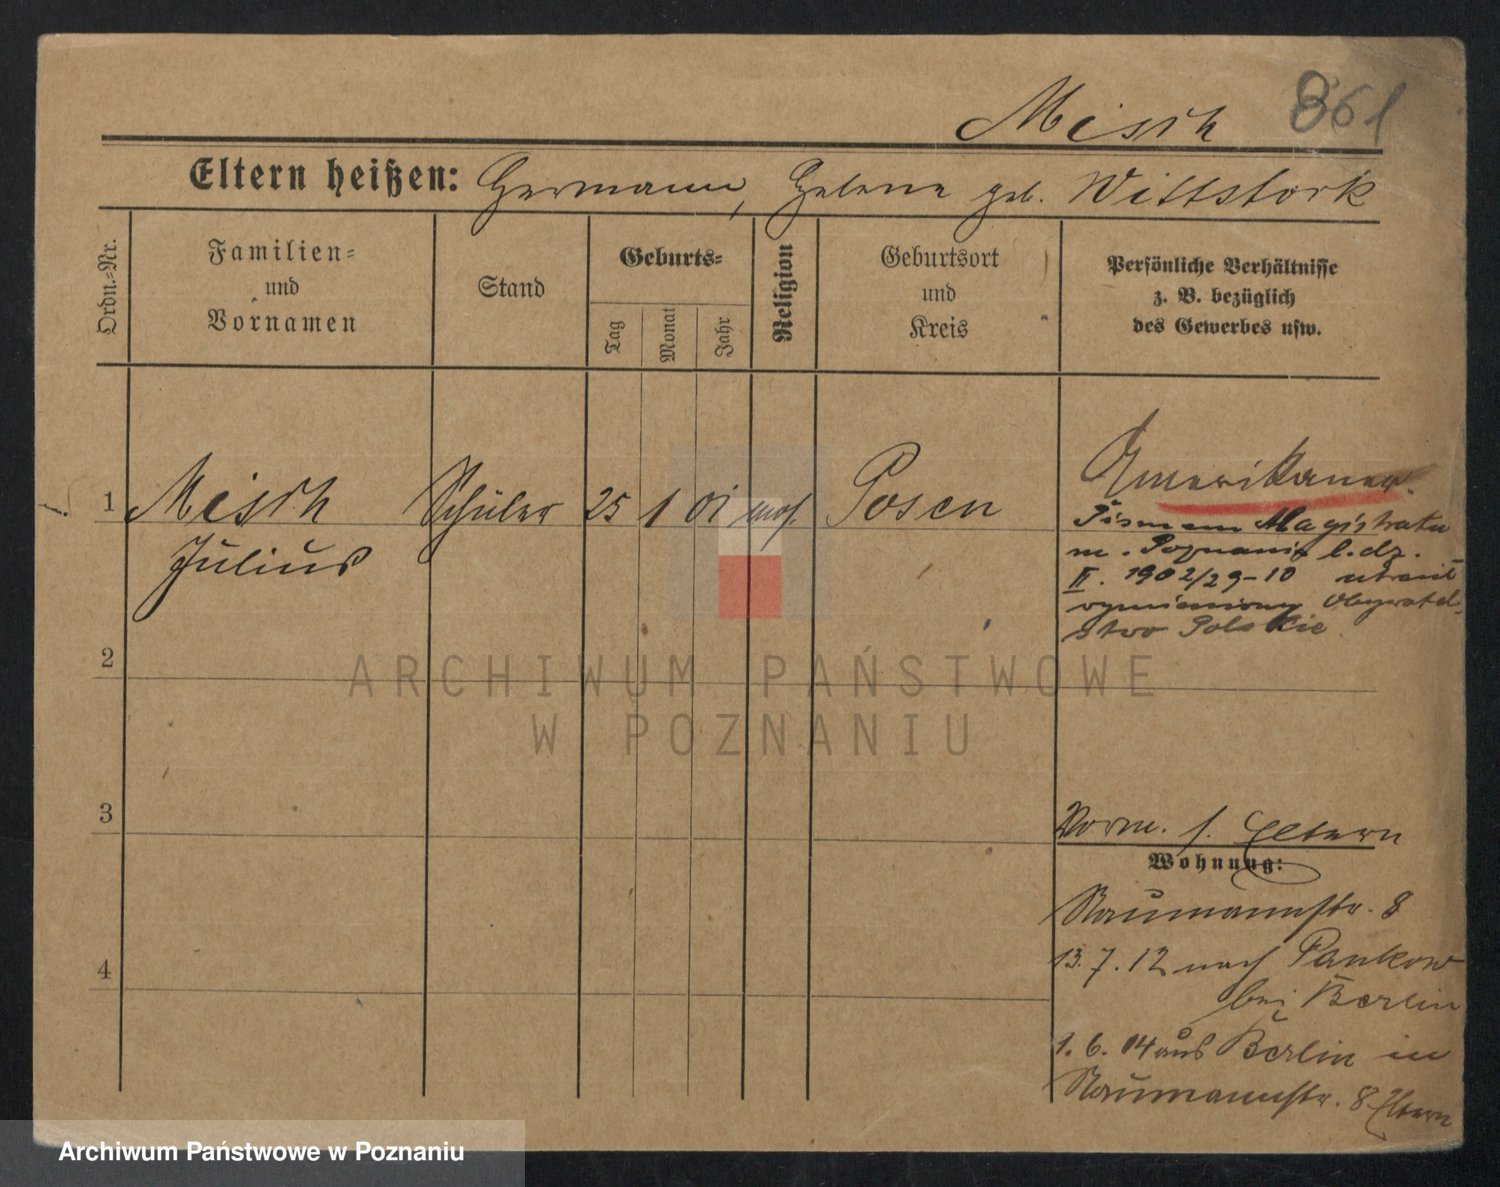 Misch 361
Eltern heißen: Hermann, Helene geb. Wittstock
Ordn.=Nr.
Familien=
und
Vornamen
Stand
Geburts=
Tag
Monat
Jahr
Religion
Geburtsort
und
Kreis
Persönliche Verhältnisse
z. B. bezüglich
des Gewerbes usw.
Amerikaner
1 Misch Schüler 25 1 01 mos. Posen
Julius
Pismem Magistratu
m. Poznania l.dz.
II. 1902/29-10 utracił
wymieniony Obywatel-
stwo Polskie.
2
3
Vorm. s. Eltern
Wohnung:
Naumannstr. 8
4
13. 7. 12 nach Pankow
bei Berlin
1. 6. 14 aus Berlin in
Naumannstr. 8 Eltern
ARCHIWUM PAŃSTWOWE
W POZNANIU
Archiwum Państwowe w Poznaniu